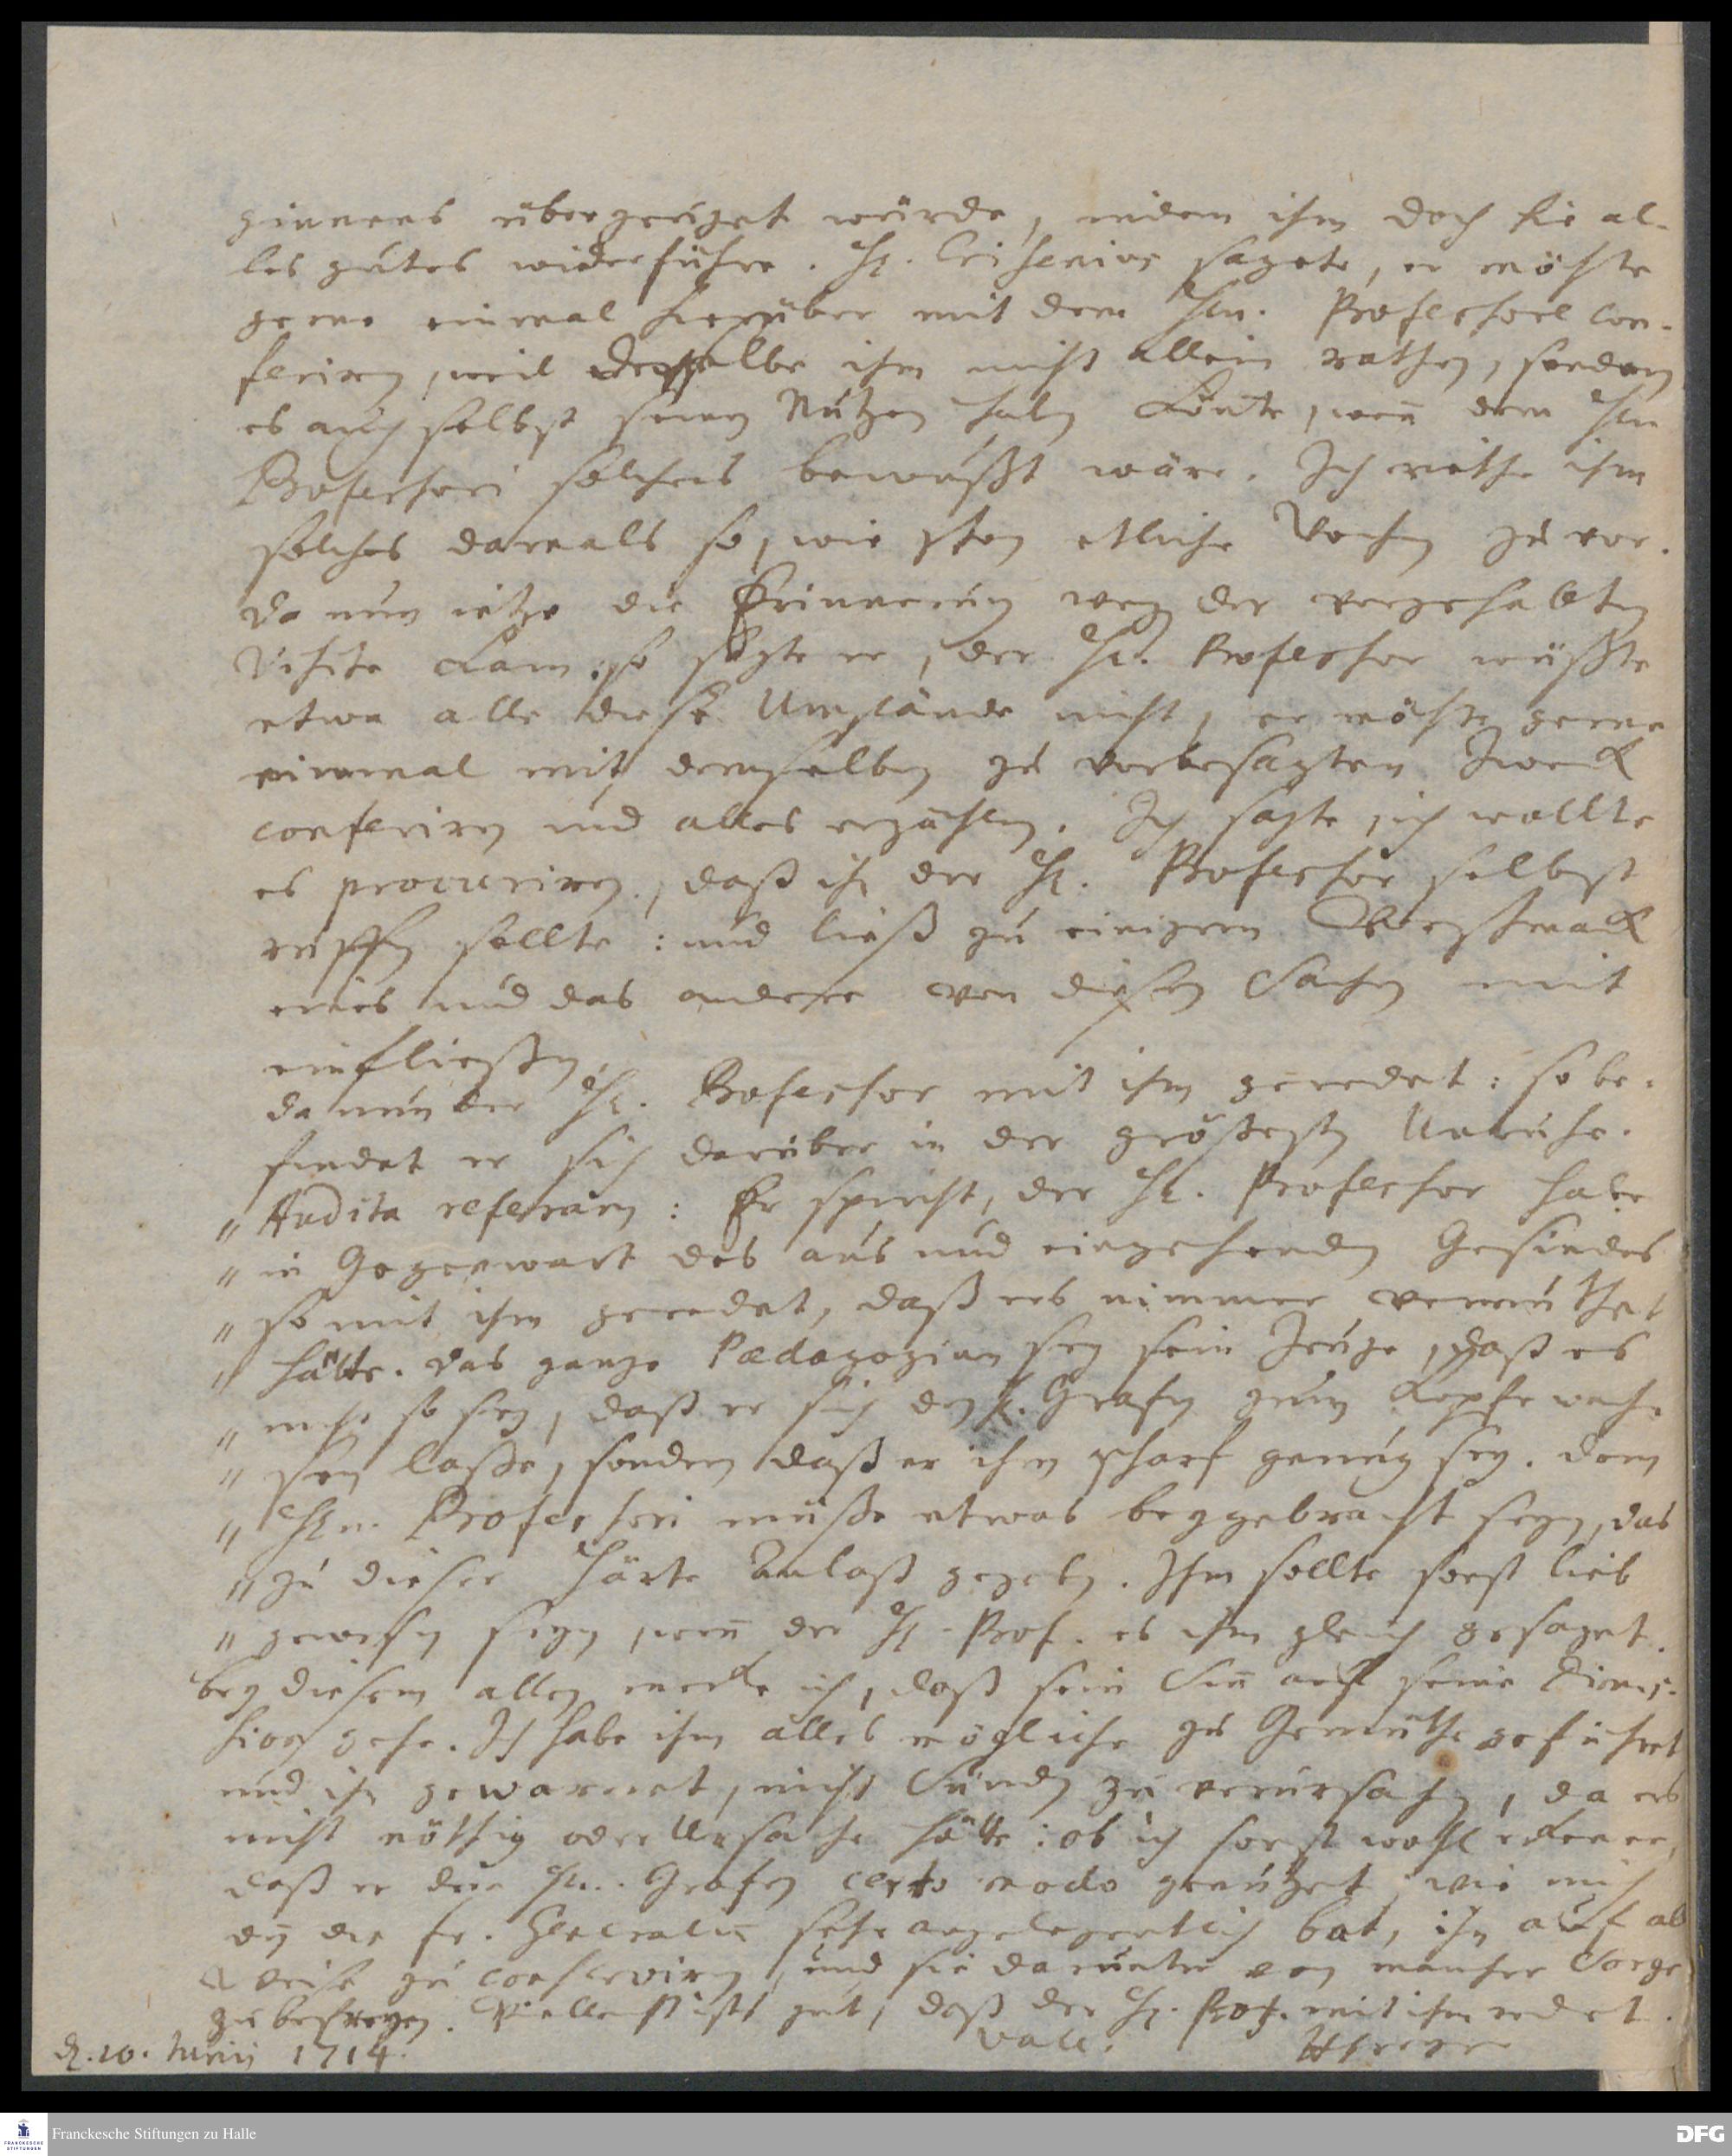 sinnes überzeuget würde, indem ihm doch hie al-
les gutes widerführe. H. Crisenius sagete, er möchte
gerne einmal hierüber mit dem Hn. Professore con-
feriren, weil derselbe ihm nicht allein rathen, sondern
es auch selbst seinen Nutzen haben könte, wen̄ dem Hn
Professori solches bewußt wäre. Ich riethe ihm
solches damals so, wie schon etliche Wochen zu vor.
Da nun ietzo die Erinnerung weg. der vorgehabten
Visite kam: so sagte er, der H. Professor wüßte
etwa alle diese Umstände nicht, er möchte gerne
einmal mit demselben zu vorbesagten Zweck
conferiren und alles erzählen. Ich sagte, ich wollte
es procuriren, daß ihn der H. Professor selbst
ruffen sollte: und ließ zu einigem Vorschmack
eines und das andere von diesen Sachen mit
einfließen.
Da nun der H. Professor mit ihm geredet: so be-
findet er sich darüber in der größesten Unruhe.
" Audita referam: Er spricht, der H. Professor habe
" in Gegenwart des aus und eingehenden Gesindes
" so mit ihm geredet, daß ers nimmer vermuthet
" hätte. Das ganze Pædagogium sey sein Zeuge, daß es
" nicht so sey, daß er sich den H. Grafen zum Kopfe wach-
" sen laße, sondern daß er ihm scharf genug sey. Dem
" Hn. Professori müße etwas beygebracht seyn, das
" zu dieser Härte Anlaß gegeben. Ihm sollte sonst lieb
" gewesen seyn, wen̄ der H. Prof. es ihm gleich gesaget.
bey diesem allen merke ich, daß sein Sin̄ auf seine Dimis-
sion gehe. Ich habe ihm alles mögliche zu Gemüthe geführet
und ihn gewarnet, nicht Sünden zu verursachen, da ers
nicht nöthig oder Ursache hätte: ob ich sonst wohl erkenne,
daß er dem Hn. Grafen certo modo genutzet, wie mich
den̄ die Fr. Generalin̄ sehr angelegentlich bat, ihn auf alle
Weise zu conserviren, und sie darunter von mancher Sorge
zu befreyen. Vielleicht ists gut, daß der H. Prof. mit ihm redet.
d. 10. Junii 1714. Vale. HFreyer
Franckesche Stiftungen zu Halle
FRANCKESCHE STIFTUNGEN
DFG